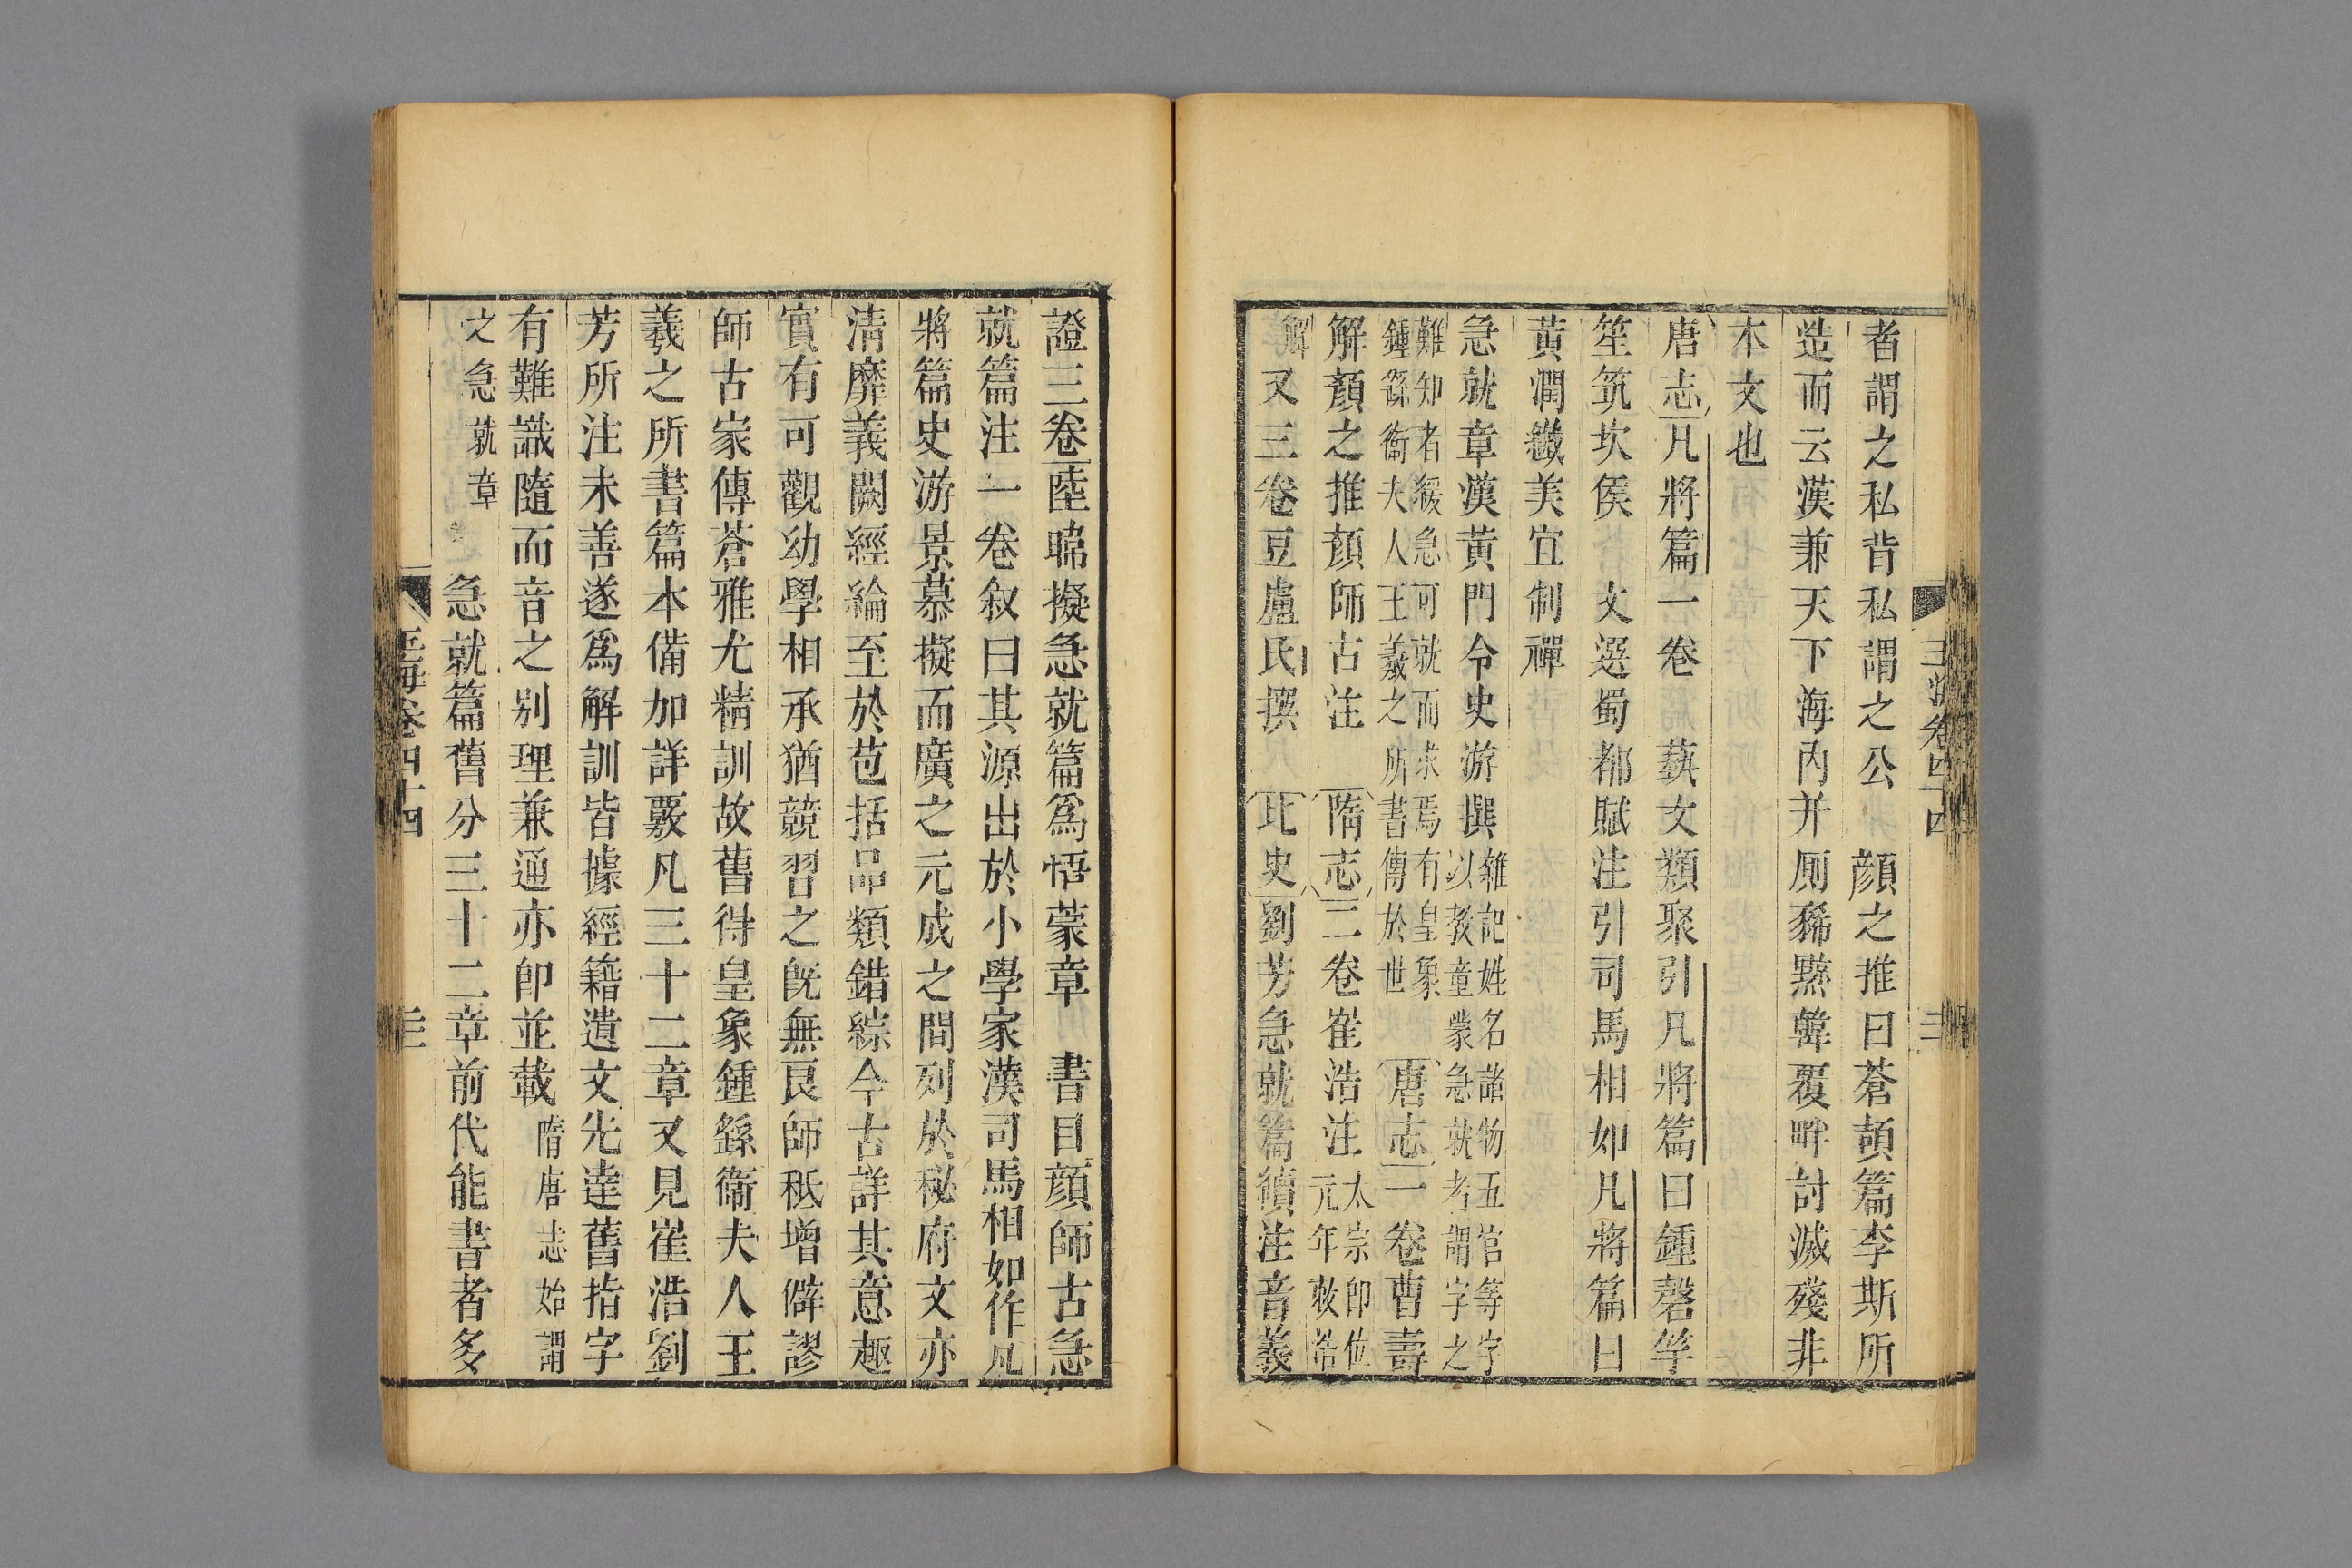 者謂之私背私謂之公　顔之推曰蒼頡篇李斯所
造而云漢兼天下海内并厠豨黥韓覆畔討滅殘非
本文也
唐志凡將篇一卷　藝文類聚引凡將篇曰鍾磬竽
笙筑坎侯　文選蜀都賦注引司馬相如凡將篇曰
黄潤纎美宜制禪
急就章漢黄門令史游撰雜記姓名諸物五官等字以教童蒙急就者謂字之
難知者緩急可就而求焉有皇象鍾繇衞夫人王羲之所書傳於世　唐志一卷曹壽
解顔之推顔師古注　隋志二卷崔浩注太宗即位元年敕浩
解又三卷豆盧氏撰　北史劉芳急就篇續注音義
證三卷陸暐擬急就篇爲悟蒙章　書目顔師古急
就篇注一卷叙曰其源出於小學家漢司馬相如作凡
將篇史游景慕擬而廣之元成之間列於秘府文亦
清靡義闕經綸至於苞括品類錯綜今古詳其意趣
實有可觀幼學相承猶競習之既無良師秪增僻謬
師古家傳蒼雅尤精訓故舊得皇象鍾繇衞夫人王
羲之所書篇本備加詳覈凡三十二章又見崔浩劉
芳所注未善遂爲解訓皆據經籍遺文先達舊指字
有難識隨而音之别理兼通亦即並載隋唐志始謂
之急就章　急就篇舊分三十二章前代能書者多
玉海卷四十四